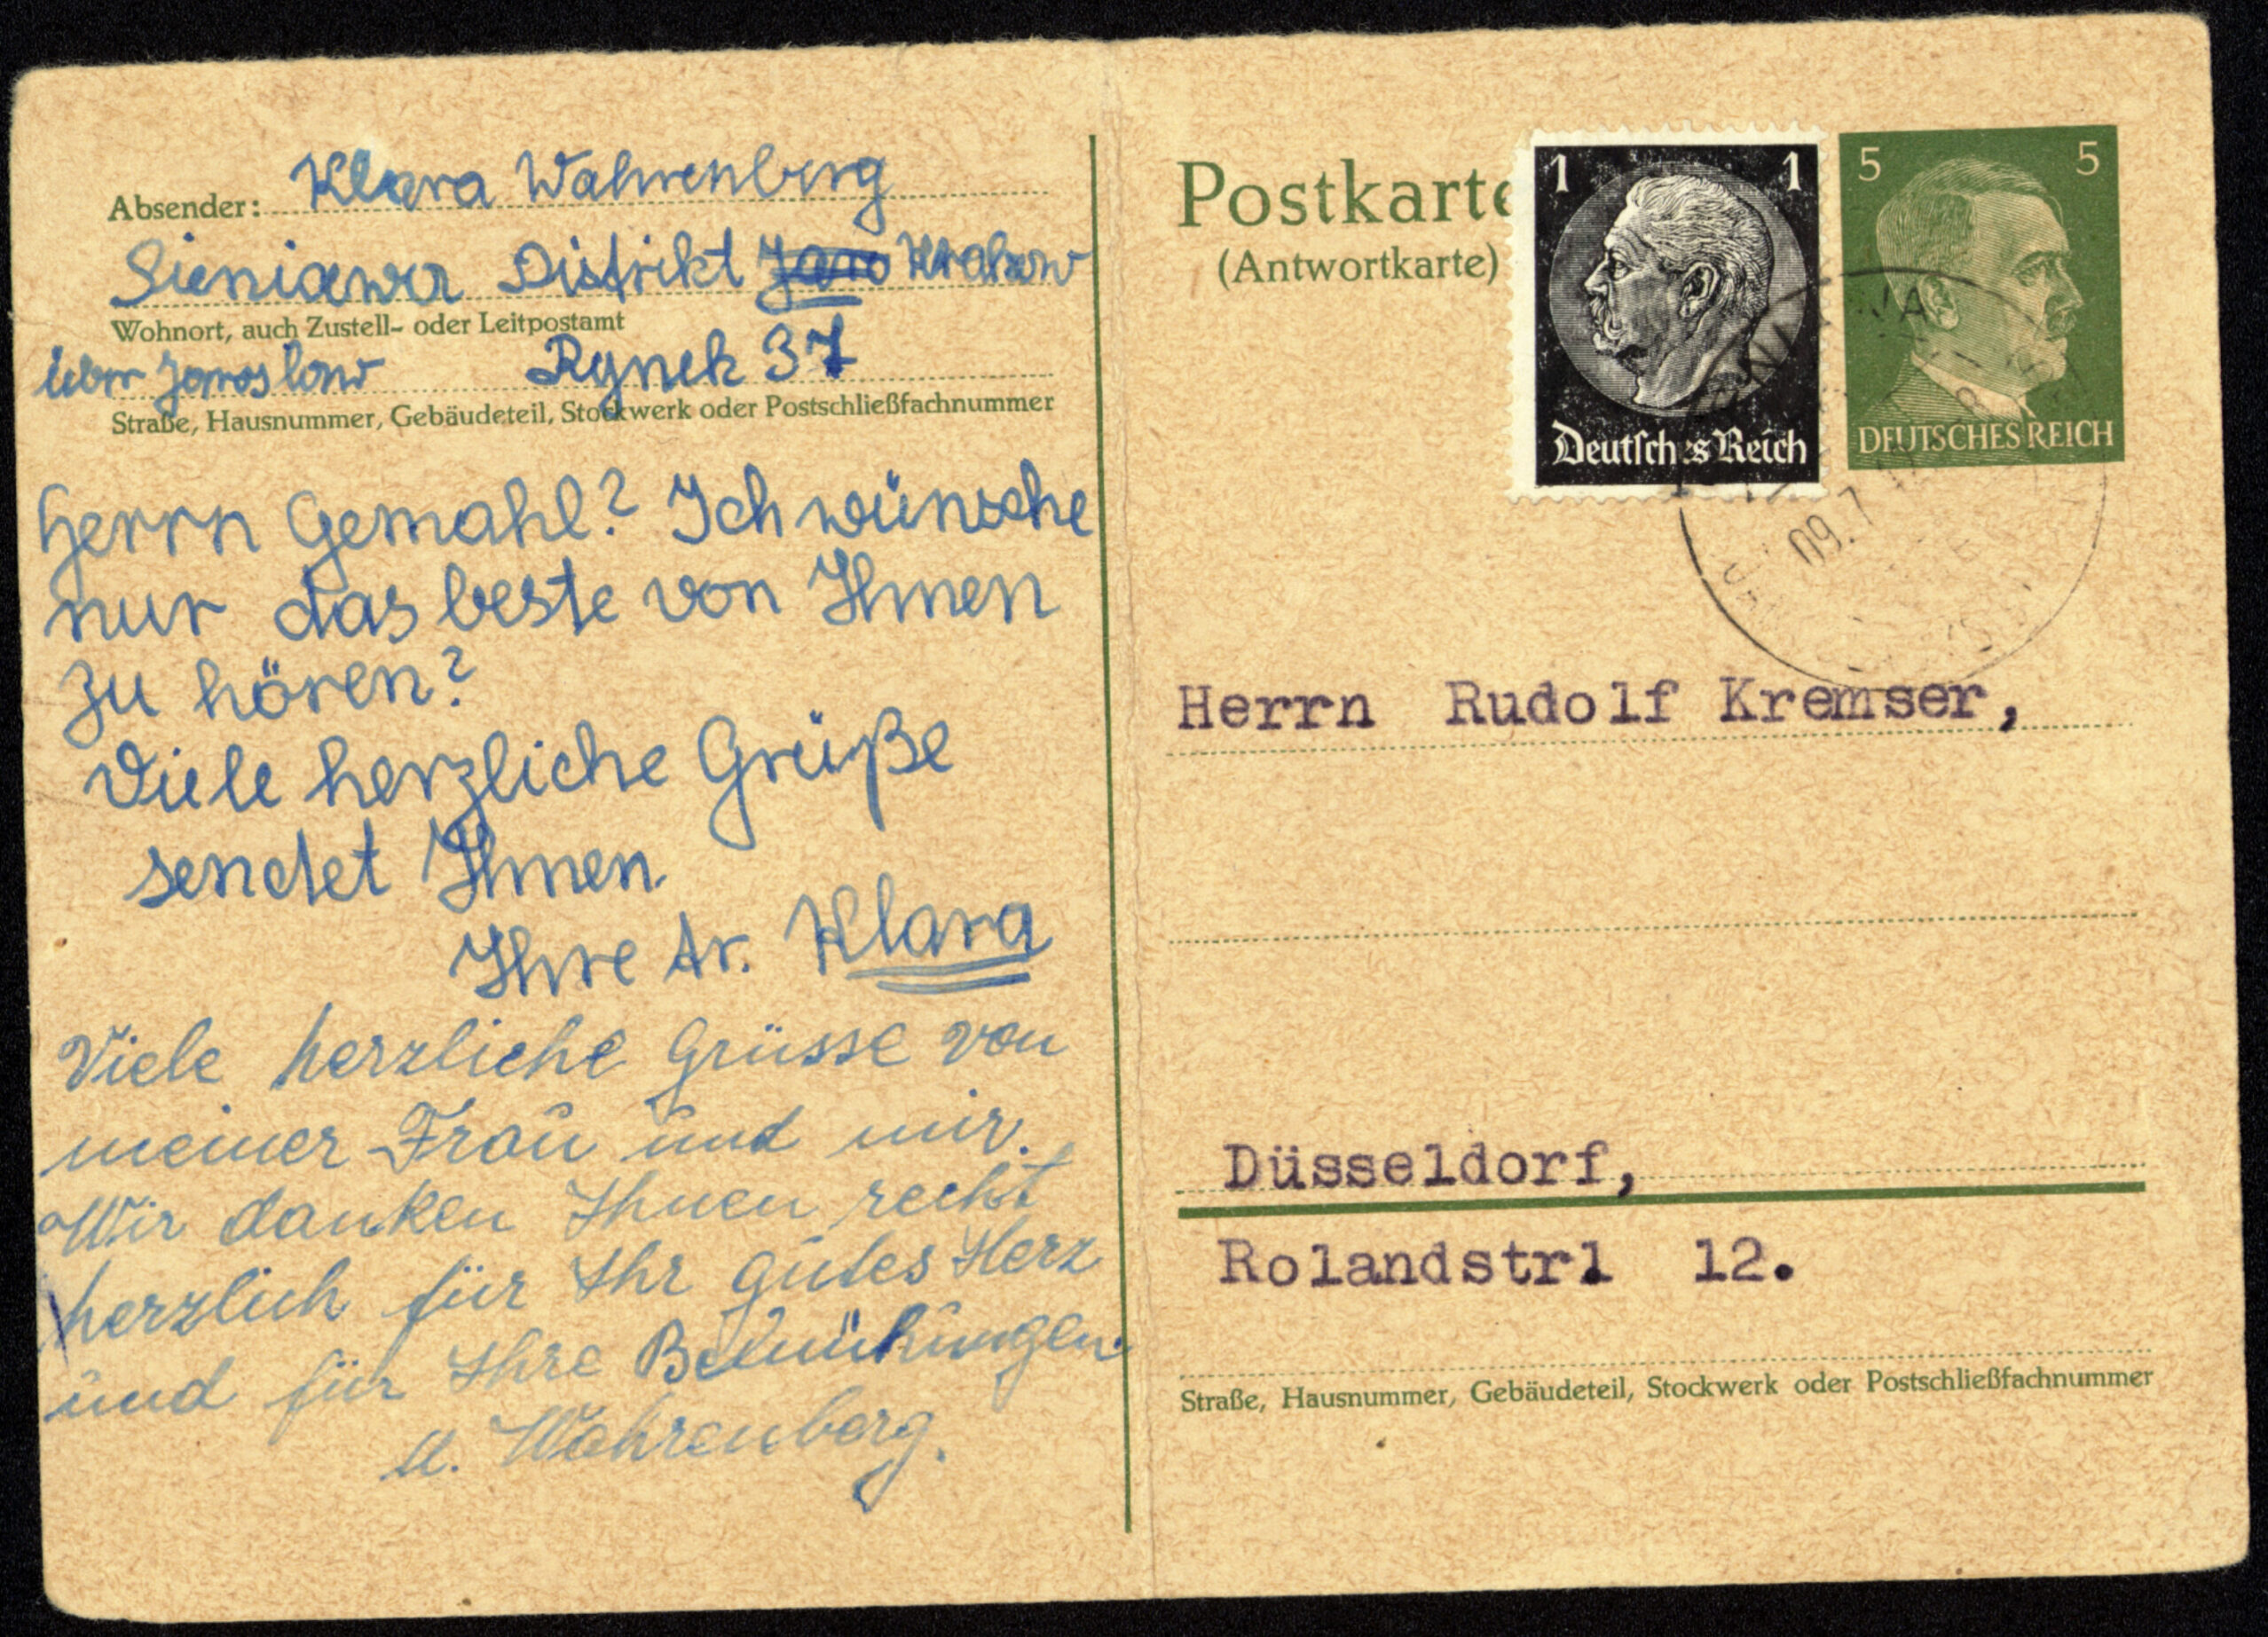 Absender: Klara Wahrenberg
Sieniawa Distrikt Jaro Krakow
Wohnort, auch Zustell- oder Leitpostamt
über Jaroslow Rynek 37
Straße, Hausnummer, Gebäudeteil, Stockwerk oder Postschließfachnummer
Herrn Gemahl? Ich wünsche
nur das beste von Ihnen
zu hören?
Viele herzliche Grüße
sendet Ihnen
Ihre tr. Klara
Viele herzliche Grüsse von
meiner Frau und mir.
Wir danken Ihnen recht
herzlich für Ihr gutes Herz
und für Ihre Bemühungen
Wahrenberg.
Postkarte
(Antwortkarte)
1 1
Deutsches Reich
5 5
DEUTSCHES REICH
09.7
Herrn Rudolf Kremser,
Düsseldorf,
Rolandstrl 12.
Straße, Hausnummer, Gebäudeteil, Stockwerk oder Postschließfachnummer